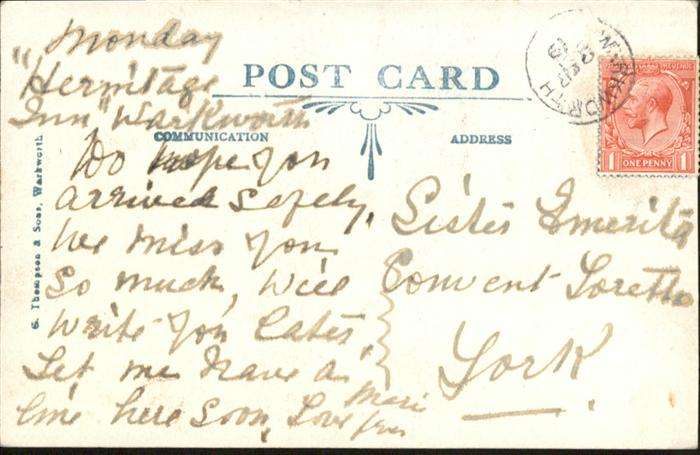 Monday
"Hermitage
Inn" Warkworth
POST CARD
COMMUNICATION
ADDRESS
Do hope you
arrived safely,
We miss you
so much, Will
write you later,
Let me have a
line here soon, Love
from Marie
Sister Emerita
Convent Loretto
York
S. Thompson & Sons, Warkworth
WARKWORTH
1 ONE PENNY 1